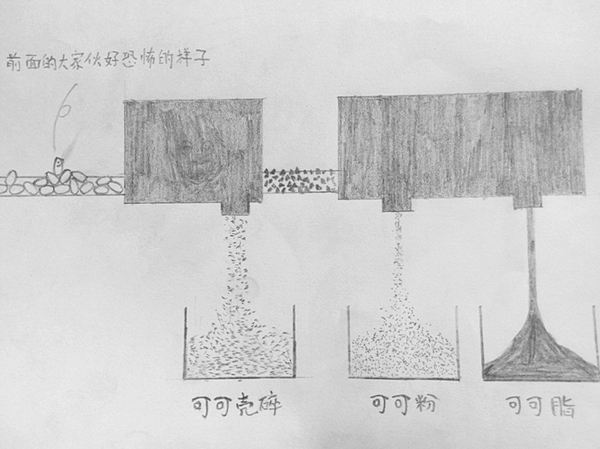 前面的大家伙好恐怖的样子
可可壳碎
可可粉
可可脂